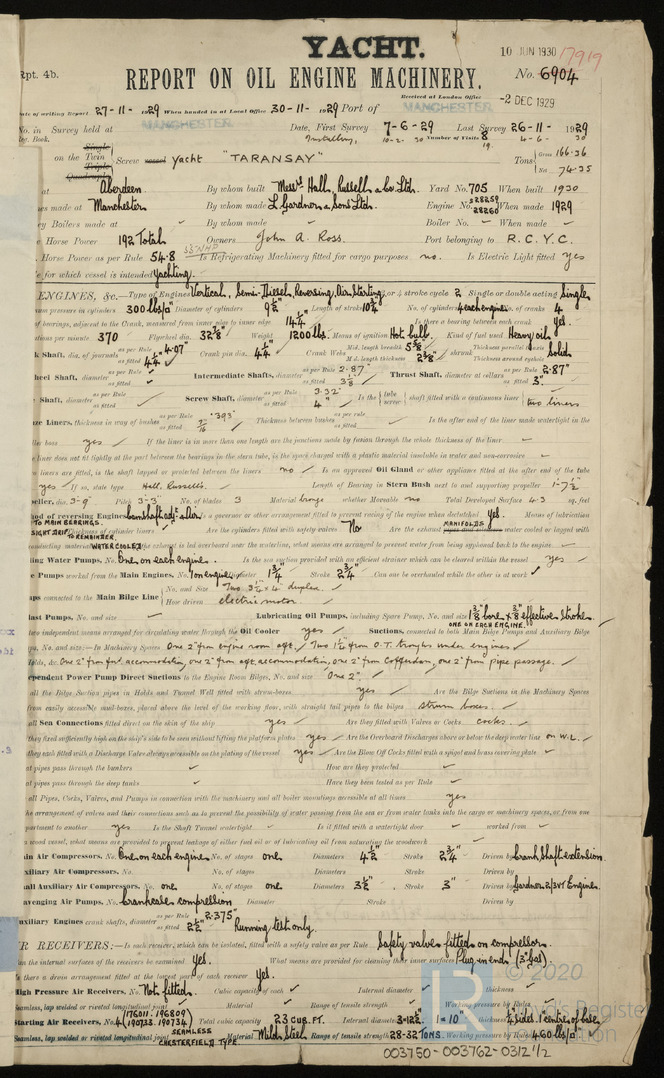 YACHT.
10 JUN 1930 17919
Rpt. 4b.
REPORT ON OIL ENGINE MACHINERY.
No. 6904
Received at London Office
-2 DEC 1929
Date of writing Report 27-11-1929 When handed in at Local Office 30-11-1929 Port of MANCHESTER
MANCHESTER
No. in Survey held at Date, First Survey 7-6-29 Last Survey 26-11-1929
Reg. Book. Number of Visits 8
on the Single Twin Triple Quadruple Screw vessel yacht "TARANSAY" Tons Gross 166.36 Net 74.35
at Aberdeen By whom built Messrs Hall, Russell & Co. Ltd. Yard No. 705 When built 1930
Engines made at Manchester By whom made L. Gardner & Sons Ltd. Engine No. 28259 28260 When made 1929
Boilers made at By whom made Boiler No. When made
Horse Power 192 Total Owners John A. Ross. Port belonging to R.C.Y.C.
Horse Power as per Rule 54.8 Is Refrigerating Machinery fitted for cargo purposes no. Is Electric Light fitted yes
for which vessel is intended Yachting.
ENGINES, &c.—Type of Engines Vertical, Semi-Diesel, Reversing, Air Starting 2 or 4 stroke cycle 2 Single or double acting Single
pressure in cylinders 300 lbs/□" Diameter of cylinders 9½" Length of stroke 10¾" No. of cylinders 4 each engine No. of cranks 4
of bearings, adjacent to the Crank, measured from inner edge to inner edge 14¼" Is there a bearing between each crank Yes.
Revolutions per minute 370 Flywheel dia. 32⅛" Weight 1200 lbs. Means of ignition Hot bulb. Kind of fuel used Heavy oil
Crank Shaft, dia. of journals as per Rule 4.07" as fitted 4¼" Crank pin dia. 4¼" Crank Webs Mid. length breadth 5⅝" Mid. length thickness 2⅛" shrunk Thickness parallel to axis Thickness around eyehole Solid
Wheel Shaft, diameter as per Rule as fitted Intermediate Shafts, diameter as per Rule 2.87" as fitted 3⅛" Thrust Shaft, diameter at collars as per Rule 2.87" as fitted 3"
Shaft, diameter as per Rule as fitted Screw Shaft, diameter as per Rule 3.32" as fitted 4" Is the tube screw shaft fitted with a continuous liner two liners
Bronze Liners, thickness in way of bushes as per Rule .393" as fitted Thickness between bushes as per rule as fitted Is the after end of the liner made watertight in the
propeller boss yes If the liner is in more than one length are the junctions made by fusion through the whole thickness of the liner
liner does not fit tightly at the part between the bearings in the stern tube, is the space charged with a plastic material insoluble in water and non-corrosive
liners are fitted, is the shaft lapped or protected between the liners no Is an approved Oil Gland or other appliance fitted at the after end of the tube
yes If so, state type Hall, Russells. Length of Bearing in Stern Bush next to and supporting propeller 1-7½"
Propeller, dia. 3-9" Pitch 3-3" No. of blades 3 Material bronze whether Moveable no Total Developed Surface 4.3 sq. feet
Method of reversing Engines Camshaft adj. & Air Is a governor or other arrangement fitted to prevent racing of the engine when declutched Yes. Means of lubrication
TO MAIN BEARINGS SIGHT DRIP TO REMAINDER Thickness of cylinder liners Are the cylinders fitted with safety valves No Are the exhaust pipes and silencers MANIFOLDS water cooled or lagged with
WATER COOLED
non-conducting material If the exhaust is led overboard near the waterline, what means are arranged to prevent water from being syphoned back to the engine
Cooling Water Pumps, No. One on each engine. Is the sea suction provided with an efficient strainer which can be cleared within the vessel yes
Bilge Pumps worked from the Main Engines, No. 1 on engine Diameter 1¾" Stroke 2¾" Can one be overhauled while the other is at work
Pumps connected to the Main Bilge Line No. and Size Two 3½" × 4" duplex. How driven electric motor
Ballast Pumps, No. and size Lubricating Oil Pumps, including Spare Pump, No. and size 1⅜" bore × ⅞" effective stroke. ONE ON EACH ENGINE.
two independent means arranged for circulating water through the Oil Cooler yes Suctions, connected to both Main Bilge Pumps and Auxiliary Bilge
Pumps, No. and size:—In Machinery Spaces One 2" from engine room aft. Two 1½" from O.T. troughs under engines
Holds, &c. One 2" from ford accommodation, one 2" from aft accommodation, one 2" from Cofferdam, one 2" from pipe passage.
Independent Power Pump Direct Suctions to the Engine Room Bilges, No. and size One 2".
all the Bilge Suction pipes in Holds and Tunnel Well fitted with strum-boxes yes Are the Bilge Suctions in the Machinery Spaces
from easily accessible mud-boxes, placed above the level of the working floor, with straight tail pipes to the bilges strum boxes.
all Sea Connections fitted direct on the skin of the ship yes Are they fitted with Valves or Cocks cocks.
they fixed sufficiently high on the ship's side to be seen without lifting the platform plates yes Are the Overboard Discharges above or below the deep water line on W.L.
they each fitted with a Discharge Valve always accessible on the plating of the vessel yes Are the Blow Off Cocks fitted with a spigot and brass covering plate
What pipes pass through the bunkers How are they protected
What pipes pass through the deep tanks Have they been tested as per Rule
all Pipes, Cocks, Valves, and Pumps in connection with the machinery and all boiler mountings accessible at all times yes
the arrangement of valves and their connections such as to prevent the possibility of water passing from the sea or from water tanks into the cargo or machinery spaces, or from one
compartment to another yes Is the Shaft Tunnel watertight Is it fitted with a watertight door worked from
a wood vessel, what means are provided to prevent leakage of either fuel oil or of lubricating oil from saturating the woodwork
Main Air Compressors, No. One on each engine No. of stages one Diameters 4½" Stroke 2¾" Driven by Crank Shaft extension.
Auxiliary Air Compressors, No. No. of stages Diameters Stroke Driven by
Small Auxiliary Air Compressors, No. one No. of stages one Diameters 3½" Stroke 3" Driven by Gardner 2/3VT Engine.
Scavenging Air Pumps, No. Crankcase compression Diameter Stroke Driven by
Auxiliary Engines crank shafts, diameter as per Rule 2.375" as fitted 2½" Running test only.
AIR RECEIVERS:—Is each receiver, which can be isolated, fitted with a safety valve as per Rule Safety valves fitted on compressors.
Can the internal surfaces of the receivers be examined Yes. What means are provided for cleaning their inner surfaces Plug in ends (3" gas).
Is there a drain arrangement fitted at the lowest part of each receiver Yes.
High Pressure Air Receivers, No. Not fitted. Cubic capacity of each Internal diameter thickness
Seamless, lap welded or riveted longitudinal joint Material Range of tensile strength Working pressure by Rules
Starting Air Receivers, No. 4 (176011. 196809 190733. 190734) Total cubic capacity 23 CUB. FT. Internal diameter 1'=10" thickness ¼" sides 1" centres of base
Seamless, lap welded or riveted longitudinal joint SEAMLESS CHESTERFIELD TYPE. Material Mild Steel Range of tensile strength 28-32 TONS Working pressure by Rules 460 lbs/□"
© 2020
Lloyd's Register
003750-003762-0312 1/2